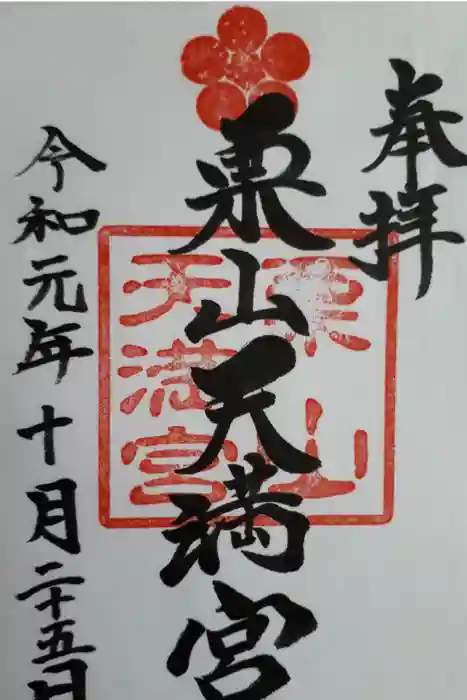 奉拝
栗山天満宮
令和元年十月二十五日
栗山
天満宮